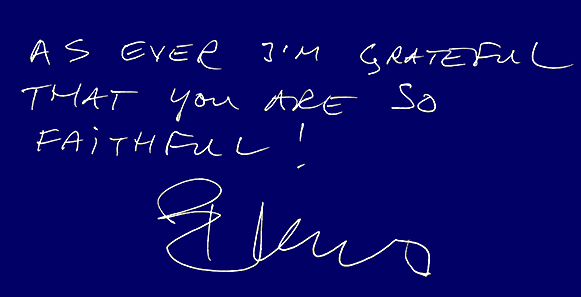 AS EVER I'M GRATEFUL
THAT YOU ARE SO
FAITHFUL!